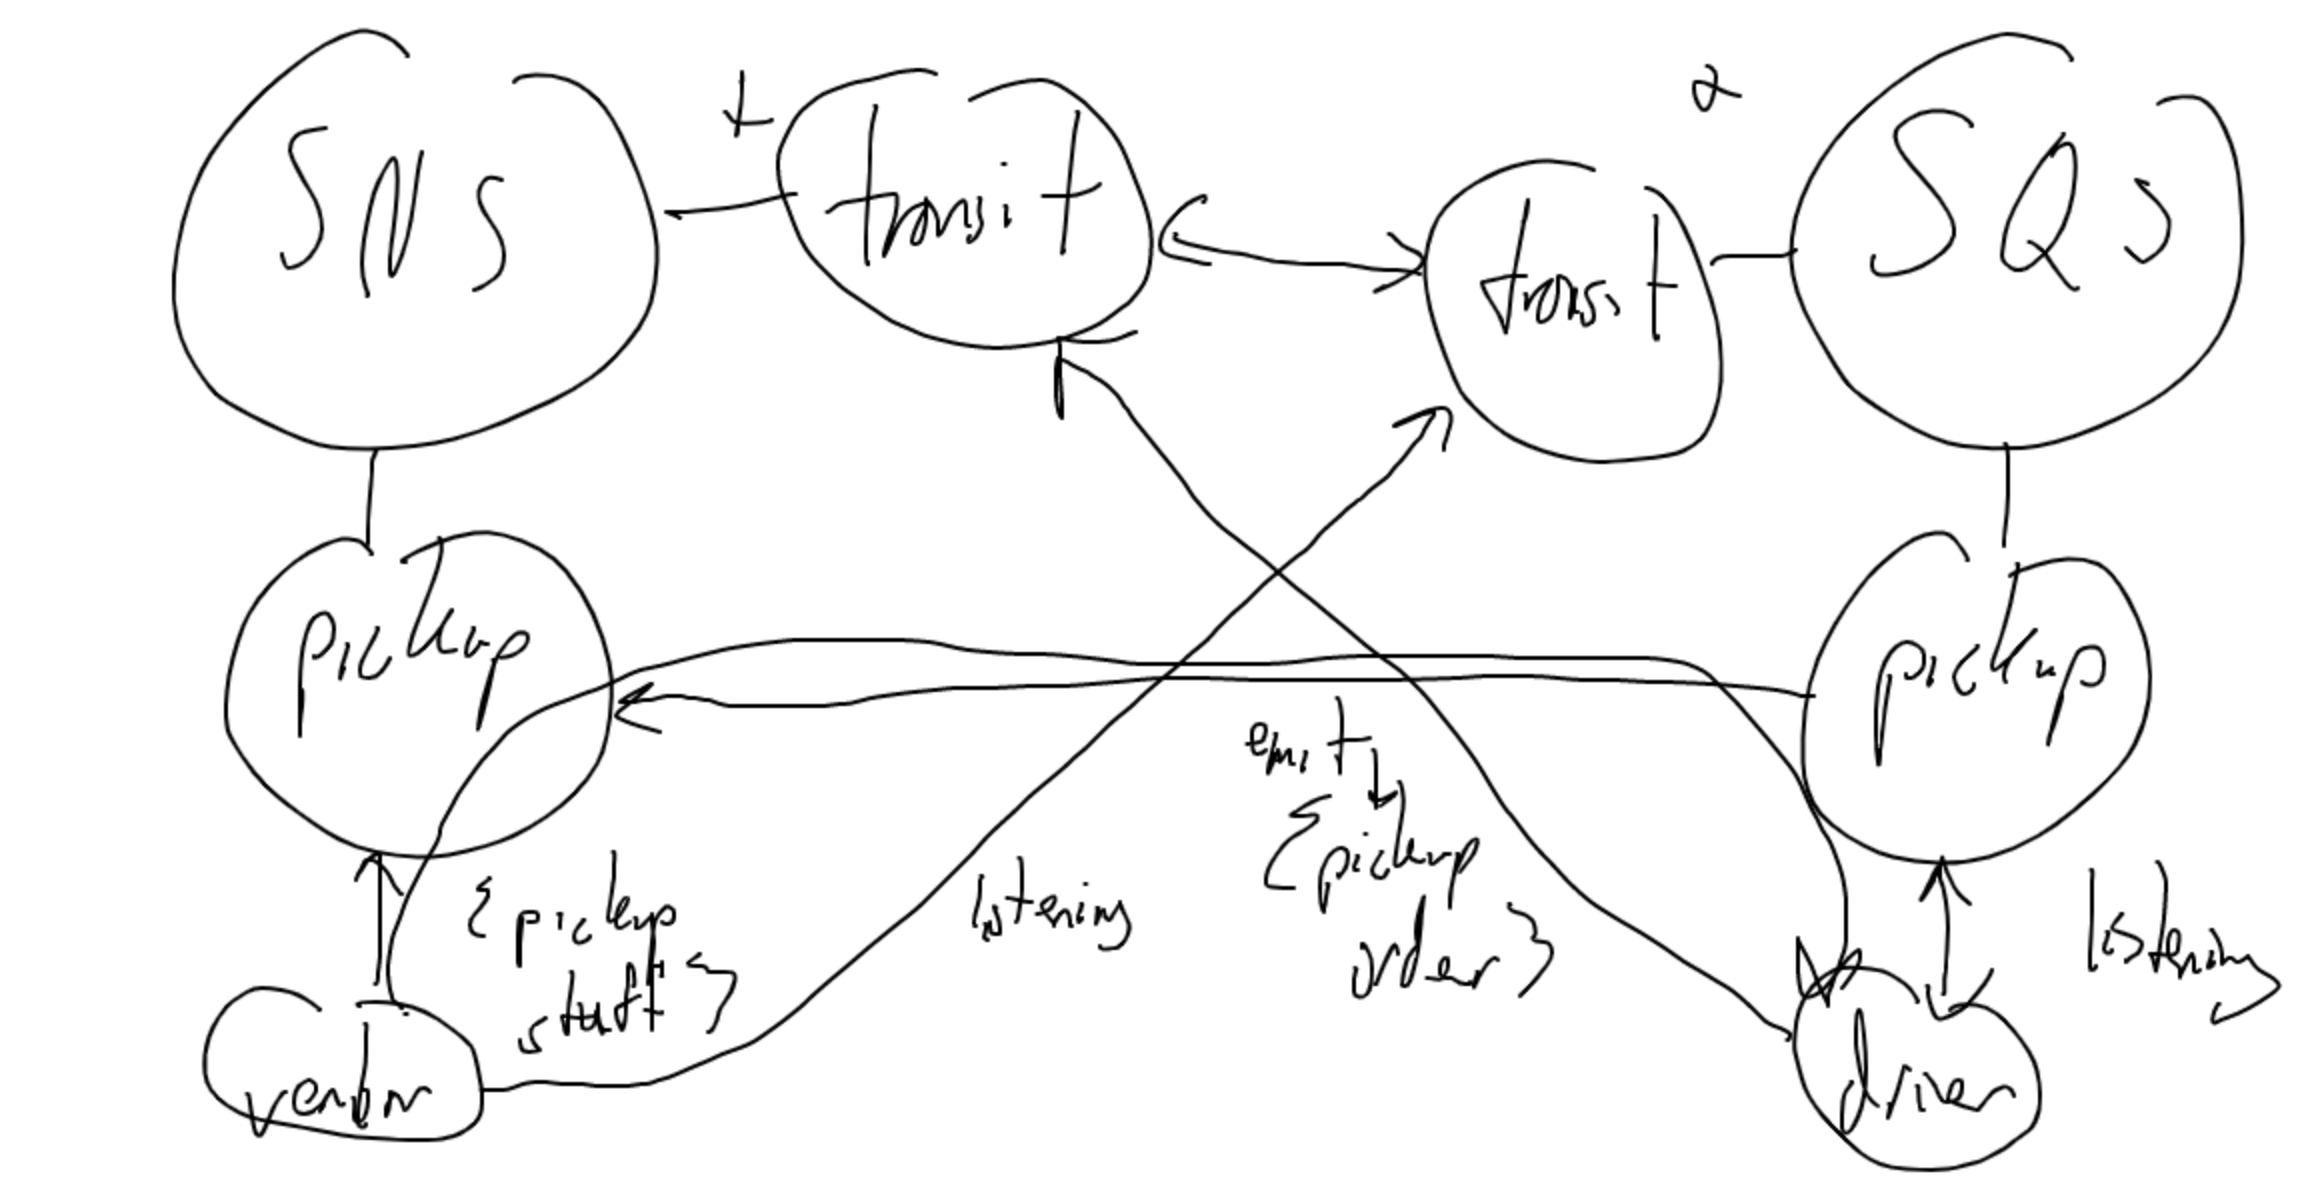 SNS
t
transit
transit
2
SQS
pickup
pickup
emit
{pickup
order}
{pickup
stuff}
listening
listening
vendor
driver